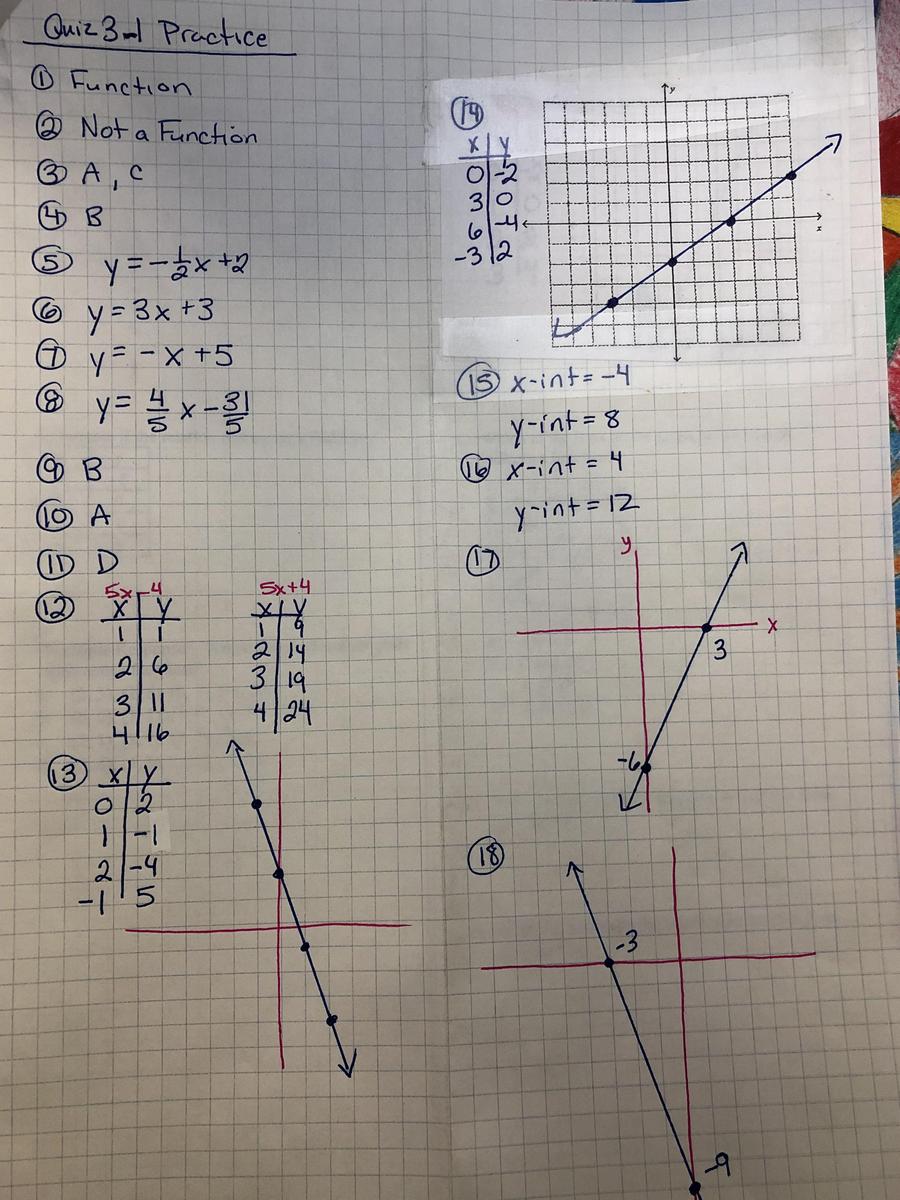 Quiz 3-1 Practice
① Function
② Not a Function
③ A, C
④ B
⑤ y = -1/2x +2
⑥ y = 3x +3
⑦ y = -x +5
⑧ y = 4/5 x - 31/5
⑨ B
⑩ A
⑪ D
⑫ 5x-4
x | y
1 | 1
2 | 6
3 | 11
4 | 16
5x+4
x | y
1 | 9
2 | 14
3 | 19
4 | 24
⑬ x | y
0 | 2
1 | -1
2 | -4
-1 | 5
⑭
x | y
0 | -2
3 | 0
6 | -4
-3 | 2
y
x
⑮ x-int = -4
y-int = 8
⑯ x-int = 4
y-int = 12
⑰
y
x
3
-6
⑱
-3
-9